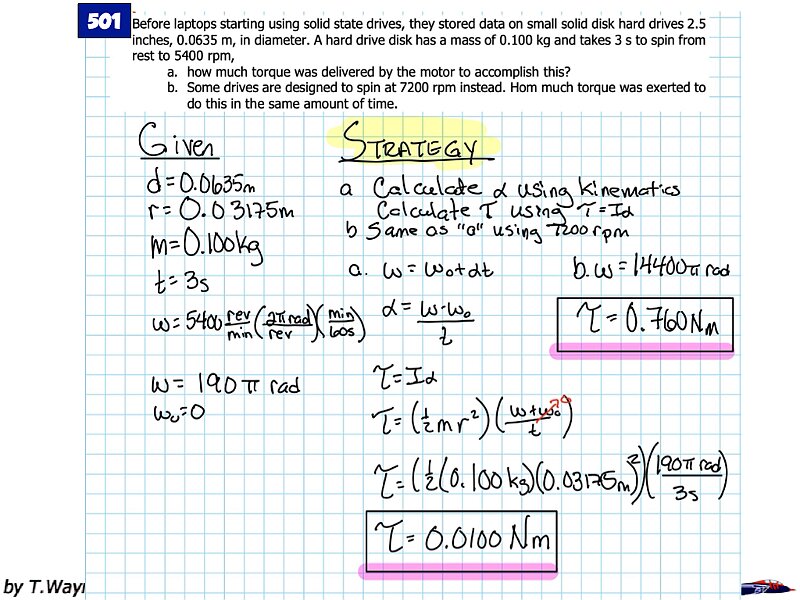 501
Before laptops starting using solid state drives, they stored data on small solid disk hard drives 2.5
inches, 0.0635 m, in diameter. A hard drive disk has a mass of 0.100 kg and takes 3 s to spin from
rest to 5400 rpm,
a. how much torque was delivered by the motor to accomplish this?
b. Some drives are designed to spin at 7200 rpm instead. Hom much torque was exerted to
do this in the same amount of time.
Given
d=0.0635m
r=0.03175m
m=0.100kg
t=3s
ω=5400 rev/min (2π rad/rev)(min/60s)
ω= 190π rad
ω₀=0
STRATEGY
a Calculate α using kinematics
Calculate τ using τ=Iα
b Same as "a" using 7200 rpm
a. ω = ω₀+αt
α = (ω-ω₀)/t
τ=Iα
τ=(½mr²)((ω+ω₀)/t)
τ=(½(0.100kg)(0.03175m)²)(190π rad/3s)
τ= 0.0100 Nm
b. ω = 14400π rad
τ= 0.760Nm
by T.Wayn